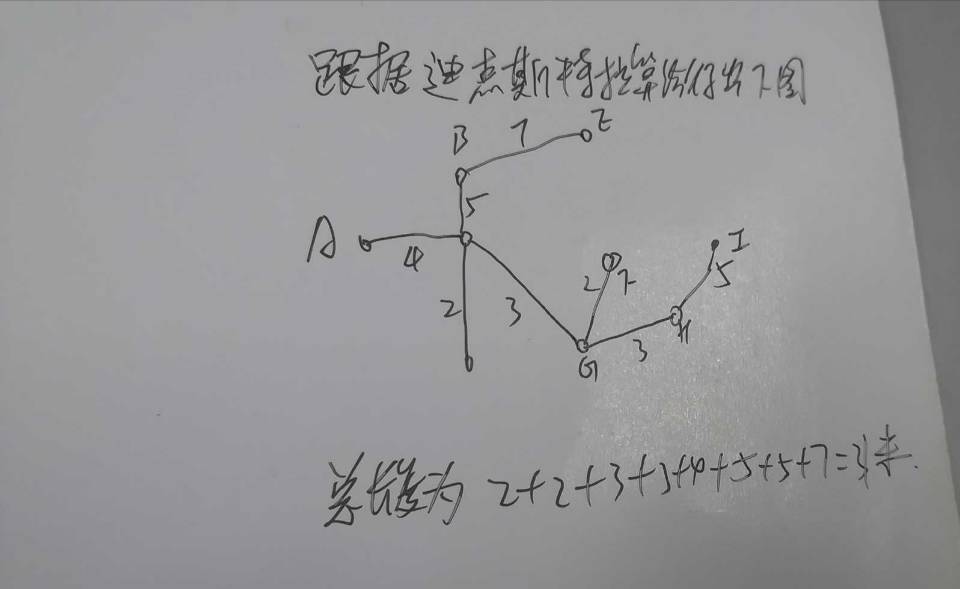 跟据迪杰斯特拉算法得出下图
B 7 E
5
A 4
2 3 2 F I
5
G 3 H
总长度为 2+2+3+3+4+5+5+7=31米.